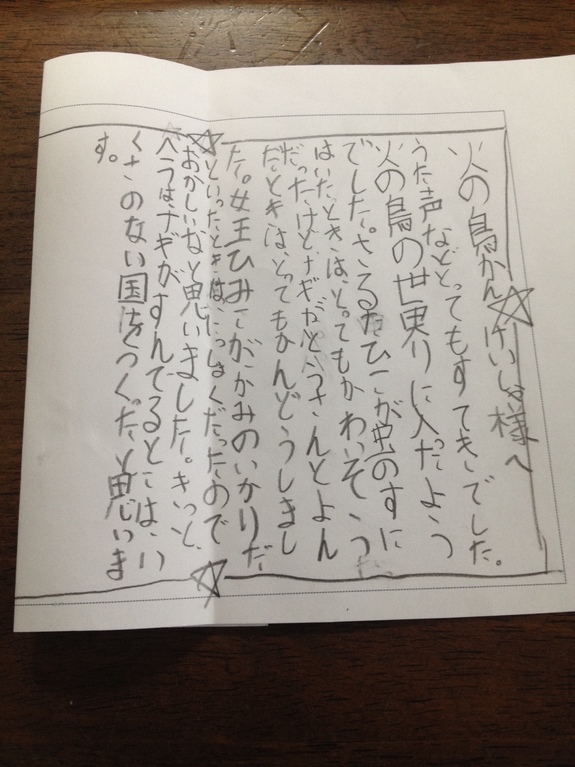 火の鳥かんけいしゃ様へ
うた声などとってもすてきでした。
火の鳥の世界に入ったよう
でした。さるたひこが虫のすに
はいたときは、とってもかわいそう
だったけど、ナギがとうさんとよん
だときは、とってもかんどうしまし
た。女王ひみこがかみのいかりだ
といったときは、にっしょくだったので
おかしいなと思いました。きっと、
ヘラはナギがすんでるとこは、い
くさのない国をつくったと思いま
す。